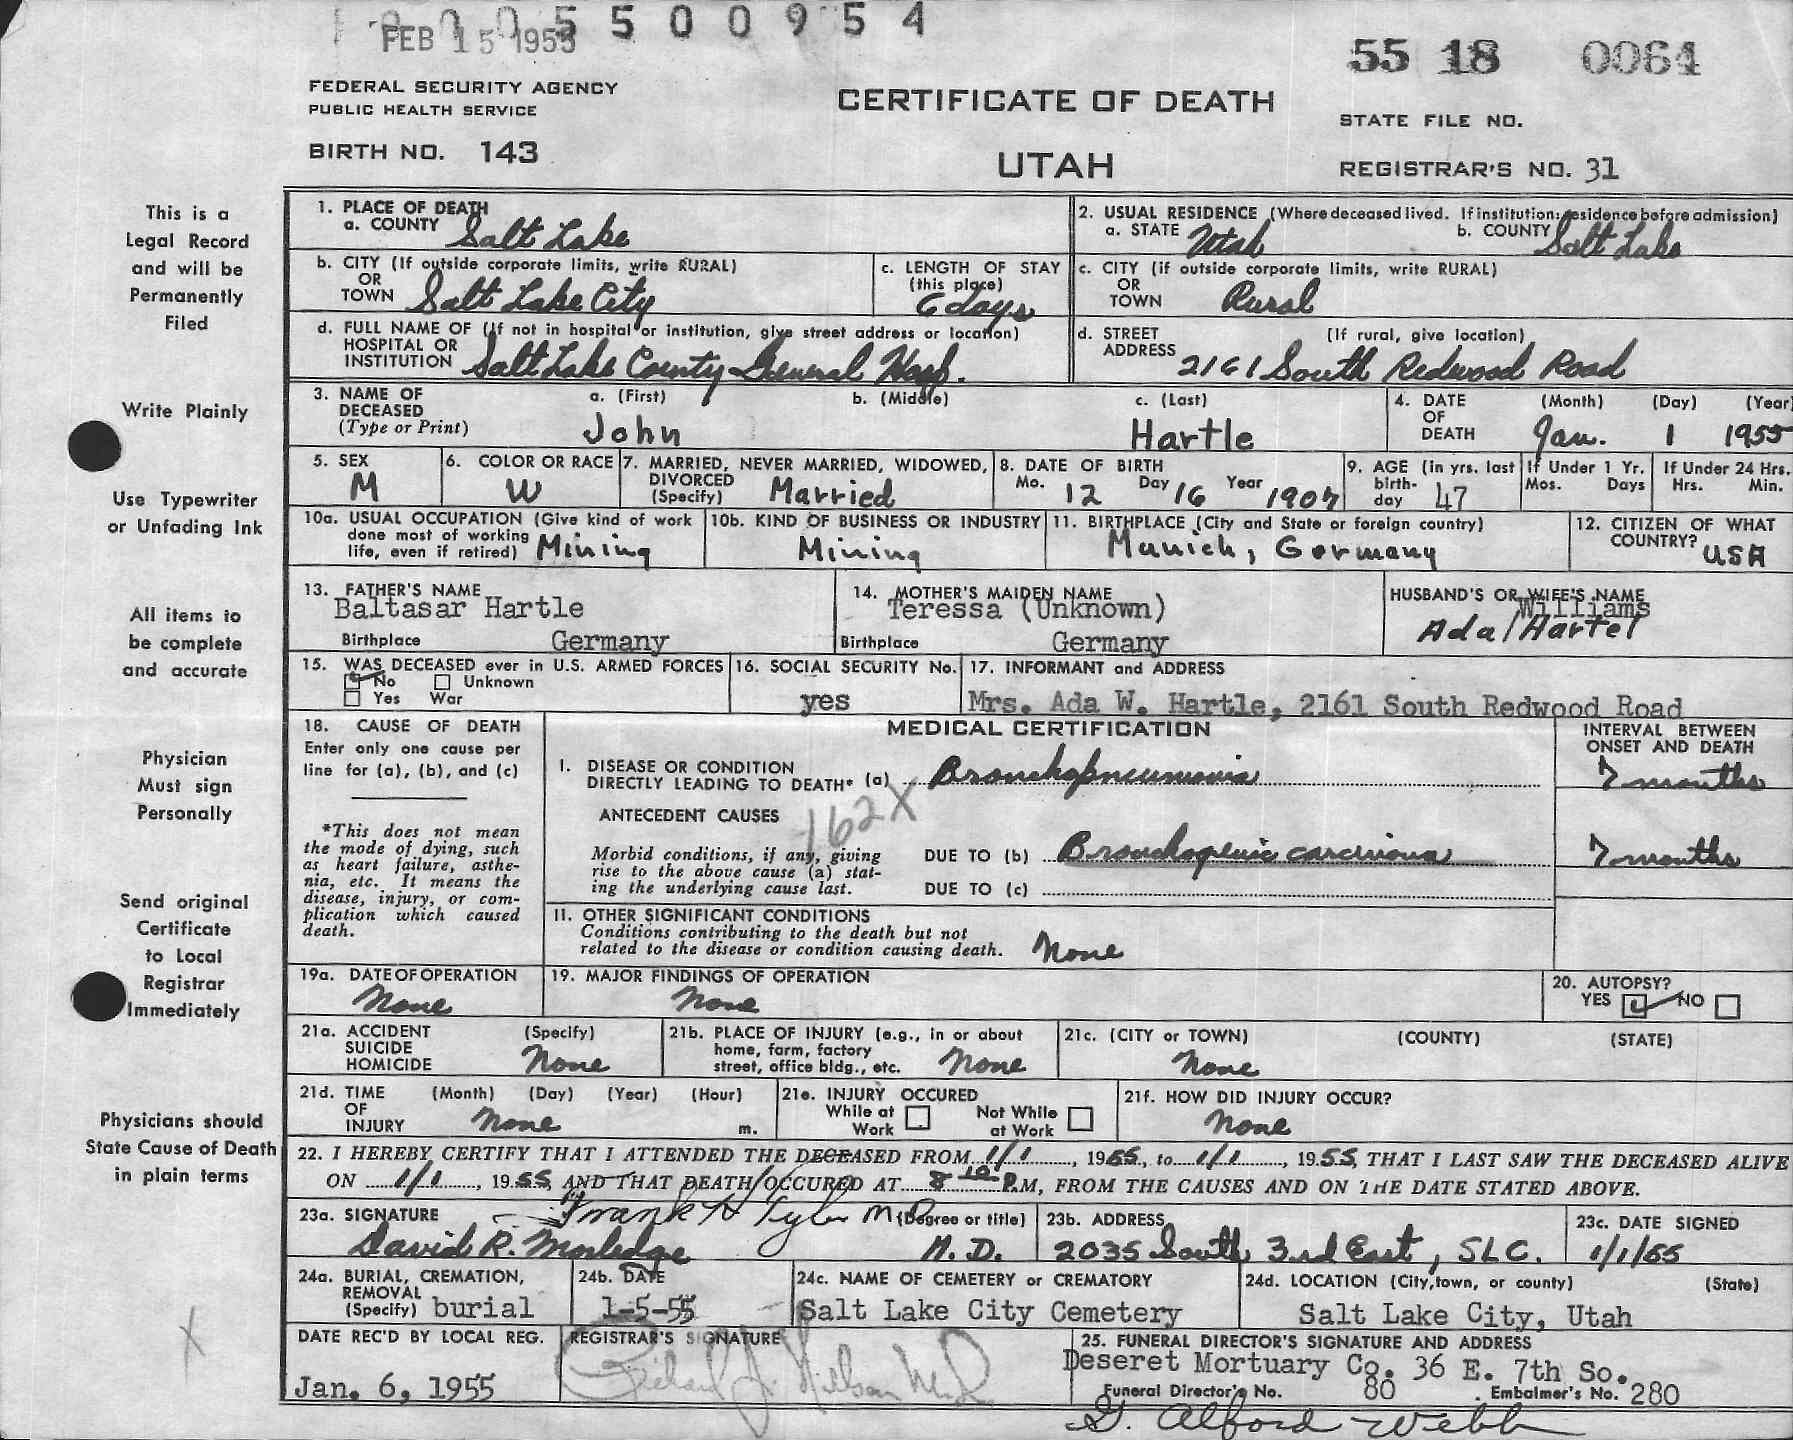 5500954
FEB 15 1955
55 18 0064
FEDERAL SECURITY AGENCY
PUBLIC HEALTH SERVICE
CERTIFICATE OF DEATH
STATE FILE NO.
BIRTH NO. 143
UTAH
REGISTRAR'S NO. 31
This is a
Legal Record
and will be
Permanently
Filed
Write Plainly
Use Typewriter
or Unfading Ink
All items to
be complete
and accurate
Physician
Must sign
Personally
Send original
Certificate
to Local
Registrar
Immediately
Physicians should
State Cause of Death
in plain terms
1. PLACE OF DEATH
a. COUNTY Salt Lake
2. USUAL RESIDENCE (Where deceased lived. If institution: residence before admission)
a. STATE Utah b. COUNTY Salt Lake
b. CITY (If outside corporate limits, write RURAL)
OR
TOWN Salt Lake City
c. LENGTH OF STAY
(this place)
6 days
c. CITY (if outside corporate limits, write RURAL)
OR
TOWN Rural
d. FULL NAME OF (If not in hospital or institution, give street address or location)
HOSPITAL OR
INSTITUTION Salt Lake County General Hosp.
d. STREET (If rural, give location)
ADDRESS 2161 South Redwood Road
3. NAME OF DECEASED
(Type or Print)
a. (First) b. (Middle) c. (Last)
John Hartle
4. DATE OF DEATH (Month) (Day) (Year)
Jan. 1 1955
5. SEX
M
6. COLOR OR RACE
W
7. MARRIED, NEVER MARRIED, WIDOWED,
DIVORCED
(Specify) Married
8. DATE OF BIRTH
Mo. 12 Day 16 Year 1907
9. AGE (in yrs. last
birth-
day 47
If Under 1 Yr.
Mos. Days
If Under 24 Hrs.
Hrs. Min.
10a. USUAL OCCUPATION (Give kind of work
done most of working
life, even if retired) Mining
10b. KIND OF BUSINESS OR INDUSTRY
Mining
11. BIRTHPLACE (City and State or foreign country)
Munich, Germany
12. CITIZEN OF WHAT
COUNTRY? USA
13. FATHER'S NAME
Baltasar Hartle
Birthplace Germany
14. MOTHER'S MAIDEN NAME
Teressa (Unknown)
Birthplace Germany
HUSBAND'S OR WIFE'S NAME
Williams
Ada / Hartel
15. WAS DECEASED ever in U.S. ARMED FORCES
No Unknown
Yes War
16. SOCIAL SECURITY No.
yes
17. INFORMANT and ADDRESS
Mrs. Ada W. Hartle, 2161 South Redwood Road
18. CAUSE OF DEATH
Enter only one cause per
line for (a), (b), and (c)
*This does not mean
the mode of dying, such
as heart failure, asthe-
nia, etc. It means the
disease, injury, or com-
plication which caused
death.
MEDICAL CERTIFICATION
INTERVAL BETWEEN
ONSET AND DEATH
I. DISEASE OR CONDITION
DIRECTLY LEADING TO DEATH* (a) Bronchopneumonia 7 months
ANTECEDENT CAUSES
162X
Morbid conditions, if any, giving
rise to the above cause (a) stat-
ing the underlying cause last.
DUE TO (b) Bronchogenic carcinoma 7 months
DUE TO (c)
II. OTHER SIGNIFICANT CONDITIONS
Conditions contributing to the death but not
related to the disease or condition causing death. None
19a. DATE OF OPERATION
None
19. MAJOR FINDINGS OF OPERATION
None
20. AUTOPSY?
YES NO
21a. ACCIDENT (Specify)
SUICIDE
HOMICIDE None
21b. PLACE OF INJURY (e.g., in or about
home, farm, factory
street, office bldg., etc. None
21c. (CITY or TOWN) (COUNTY) (STATE)
None
21d. TIME (Month) (Day) (Year) (Hour)
OF
INJURY None m.
21e. INJURY OCCURED
While at Work Not While at Work
21f. HOW DID INJURY OCCUR?
None
22. I HEREBY CERTIFY THAT I ATTENDED THE DECEASED FROM 1/1, 1955, to 1/1, 1955, THAT I LAST SAW THE DECEASED ALIVE
ON 1/1, 1955, AND THAT DEATH OCCURED AT 8 10 P.M, FROM THE CAUSES AND ON THE DATE STATED ABOVE.
23a. SIGNATURE Frank H Tyler MD (Degree or title)
David R. Morledge M.D.
23b. ADDRESS
2035 South 3rd East, SLC.
23c. DATE SIGNED
1/1/55
24a. BURIAL, CREMATION,
REMOVAL
(Specify) burial
24b. DATE
1-5-55
24c. NAME OF CEMETERY or CREMATORY
Salt Lake City Cemetery
24d. LOCATION (City, town, or county) (State)
Salt Lake City, Utah
DATE REC'D BY LOCAL REG.
Jan. 6, 1955
REGISTRAR'S SIGNATURE
25. FUNERAL DIRECTOR'S SIGNATURE AND ADDRESS
Deseret Mortuary Co. 36 E. 7th So.
Funeral Director's No. 80 Embalmer's No. 280
G. Alford Webb